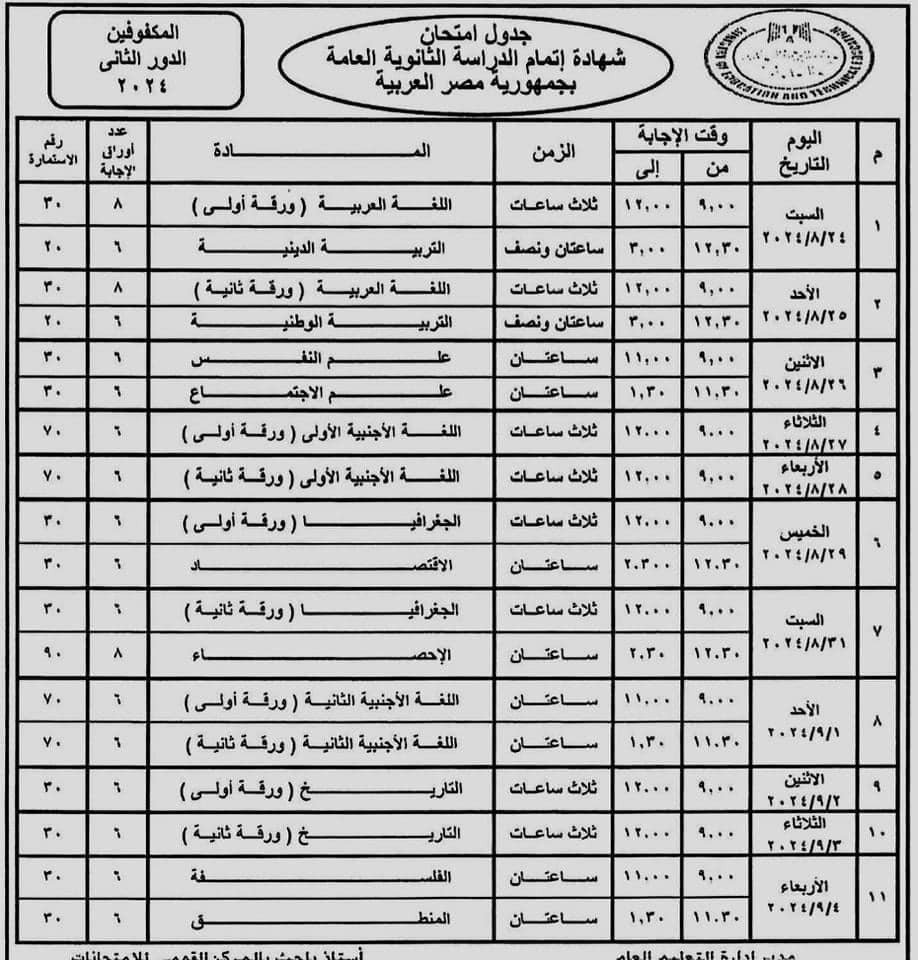 جدول امتحان
شهادة إتمام الدراسة الثانوية العامة
بجمهورية مصر العربية
المكفوفين
الدور الثانى
٢٠٢٤
EDUCATION AND TECHNICAL
م اليوم التاريخ وقت الإجابة من إلى الزمن المـادة عدد أوراق الإجابة رقم الاستمارة
١ السبت ٢٠٢٤/٨/٢٤ ٩,٠٠ ١٢,٠٠ ثلاث ساعات اللغة العربية ( ورقة أولى ) ٨ ٣٠
١٢,٣٠ ٣,٠٠ ساعتان ونصف التربية الدينية ٦ ٢٠
٢ الأحد ٢٠٢٤/٨/٢٥ ٩,٠٠ ١٢,٠٠ ثلاث ساعات اللغة العربية ( ورقة ثانية ) ٨ ٣٠
١٢,٣٠ ٣,٠٠ ساعتان ونصف التربية الوطنية ٦ ٢٠
٣ الاثنين ٢٠٢٤/٨/٢٦ ٩,٠٠ ١١,٠٠ ساعتان علم النفس ٦ ٣٠
١١,٣٠ ١,٣٠ ساعتان علم الاجتماع ٦ ٣٠
٤ الثلاثاء ٢٠٢٤/٨/٢٧ ٩,٠٠ ١٢,٠٠ ثلاث ساعات اللغة الأجنبية الأولى ( ورقة أولى ) ٦ ٧٠
٥ الأربعاء ٢٠٢٤/٨/٢٨ ٩,٠٠ ١٢,٠٠ ثلاث ساعات اللغة الأجنبية الأولى ( ورقة ثانية ) ٦ ٧٠
٦ الخميس ٢٠٢٤/٨/٢٩ ٩,٠٠ ١٢,٠٠ ثلاث ساعات الجغرافيا ( ورقة أولى ) ٦ ٣٠
١٢,٣٠ ٢,٣٠٠ ساعتان الاقتصاد ٦ ٣٠
٧ السبت ٢٠٢٤/٨/٣١ ٩,٠٠ ١٢,٠٠ ثلاث ساعات الجغرافيا ( ورقة ثانية ) ٦ ٣٠
١٢,٣٠ ٢,٣٠ ساعتان الإحصاء ٨ ٩٠
٨ الأحد ٢٠٢٤/٩/١ ٩,٠٠ ١١,٠٠ ساعتان اللغة الأجنبية الثانية ( ورقة أولى ) ٦ ٧٠
١١,٣٠ ١,٣٠ ساعتان اللغة الأجنبية الثانية ( ورقة ثانية ) ٦ ٧٠
٩ الاثنين ٢٠٢٤/٩/٢ ٩,٠٠ ١٢,٠٠ ثلاث ساعات التاريخ ( ورقة أولى ) ٦ ٣٠
١٠ الثلاثاء ٢٠٢٤/٩/٣ ٩,٠٠ ١٢,٠٠ ثلاث ساعات التاريخ ( ورقة ثانية ) ٦ ٣٠
١١ الأربعاء ٢٠٢٤/٩/٤ ٩,٠٠ ١١,٠٠ ساعتان الفلسفة ٦ ٣٠
١١,٣٠ ١,٣٠ ساعتان المنطق ٦ ٣٠
مدير إدارة التعليم العام أستاذ باحث بالمركز القومى للامتحانات